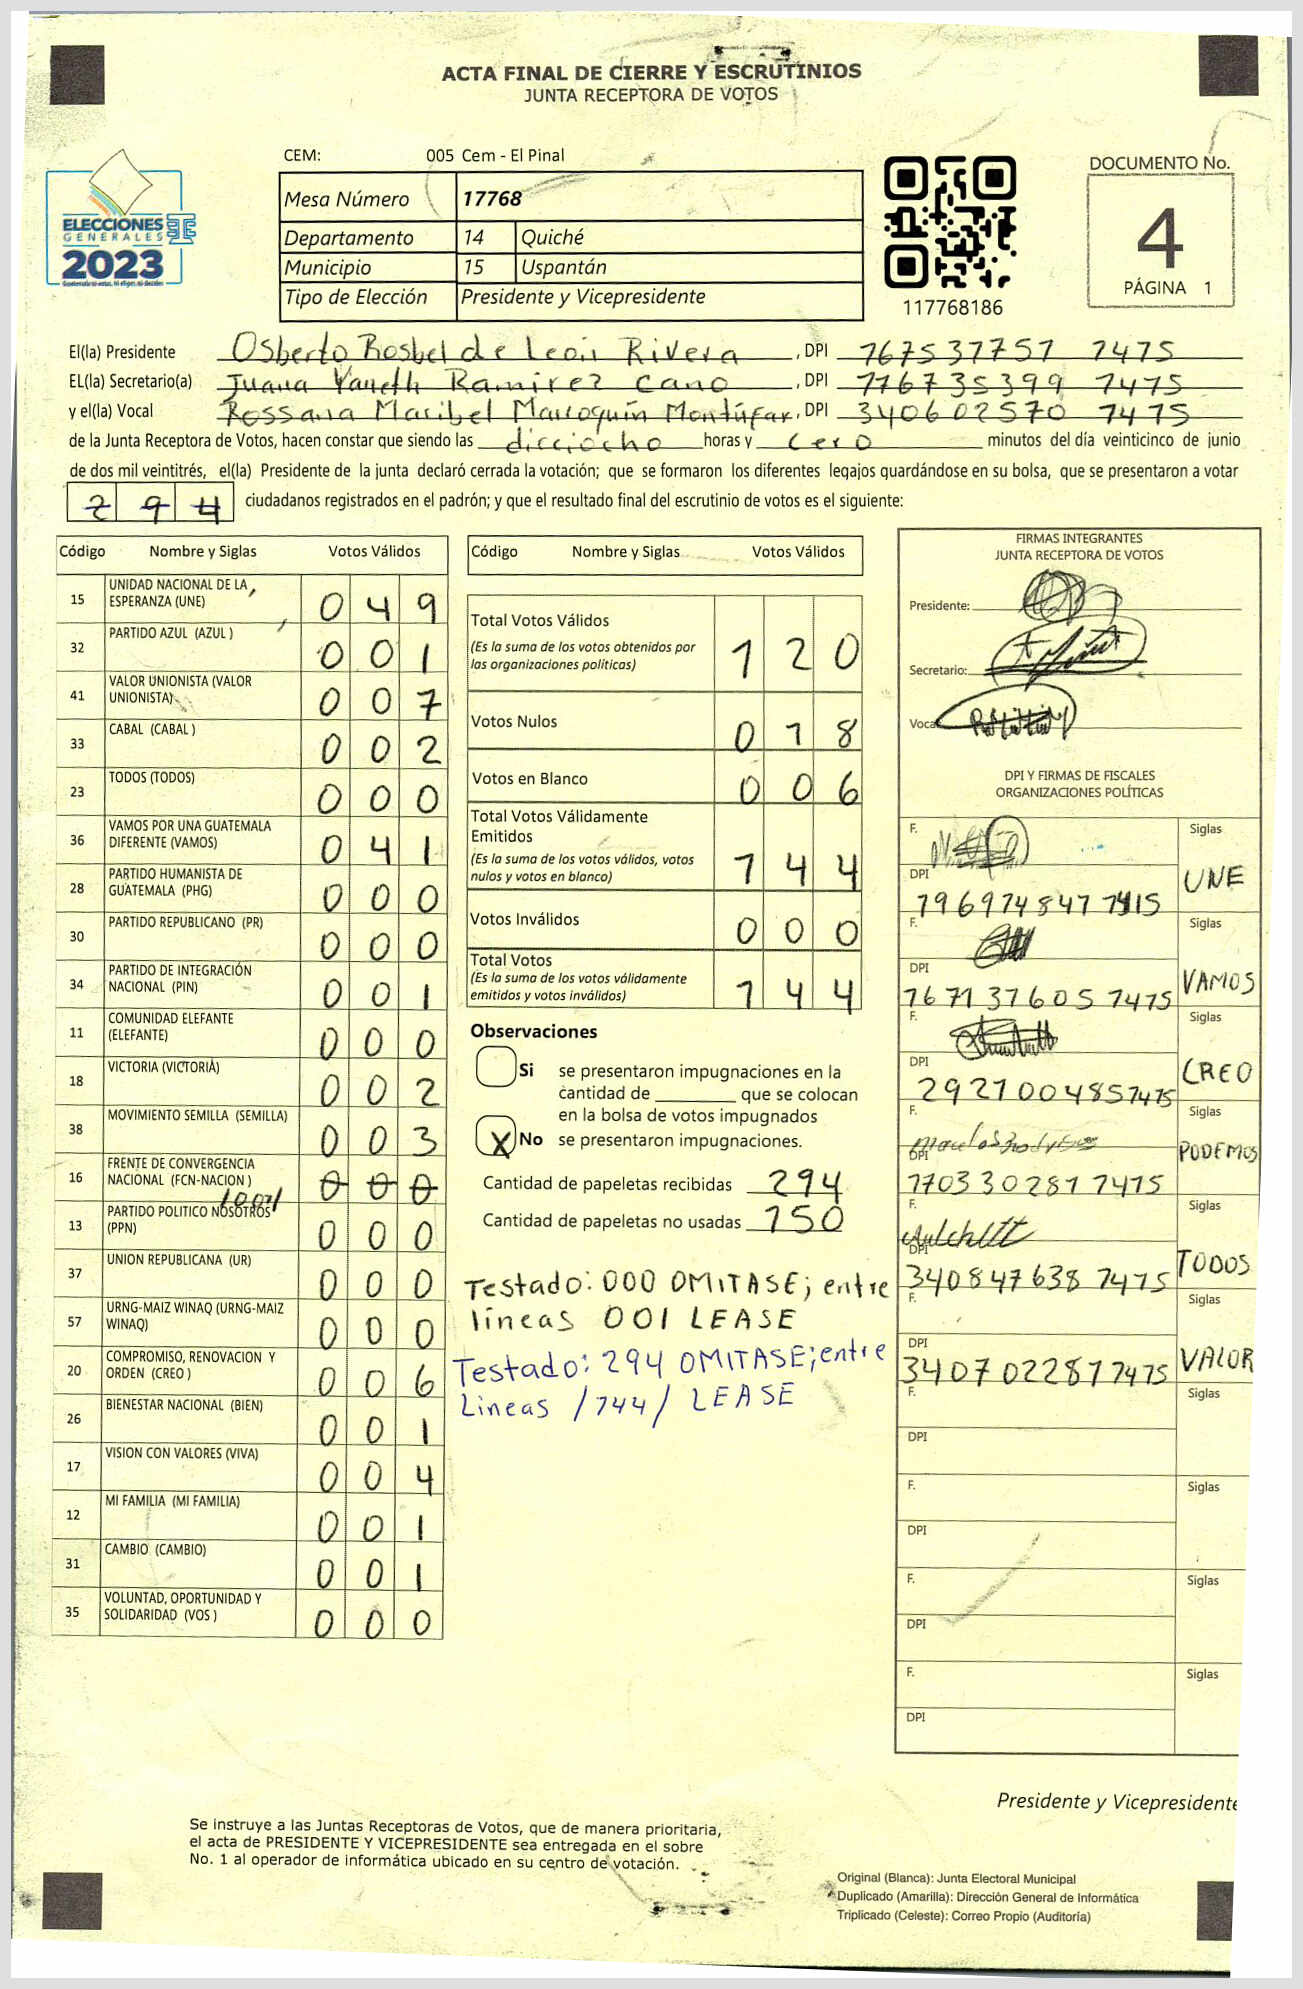 ACTA FINAL DE CIERRE Y ESCRUTINIOS
JUNTA RECEPTORA DE VOTOS
CEM: 005 Cem - El Pinal
DOCUMENTO No.
4
PÁGINA 1
ELECCIONES
GENERALES
2023
Mesa Número 17768
Departamento 14 Quiché
Municipio 15 Uspantán
Tipo de Elección Presidente y Vicepresidente
117768186
El(la) Presidente Osberto Rosbel de León Rivera, DPI 767537757 7475
EL(la) Secretario(a) Juana Yaneth Ramirez Cano, DPI 776735399 7475
y el(la) Vocal Rossana Maribel Marroquín Montúfar, DPI 340602570 7475
de la Junta Receptora de Votos, hacen constar que siendo las dieciocho horas y cero minutos del día veinticinco de junio
de dos mil veintitrés, el(la) Presidente de la junta declaró cerrada la votación; que se formaron los diferentes legajos quardándose en su bolsa, que se presentaron a votar
294 ciudadanos registrados en el padrón; y que el resultado final del escrutinio de votos es el siguiente:
Código Nombre y Siglas Votos Válidos
15 UNIDAD NACIONAL DE LA
ESPERANZA (UNE) 0 4 9
32 PARTIDO AZUL (AZUL ) 0 0 1
41 VALOR UNIONISTA (VALOR
UNIONISTA) 0 0 7
33 CABAL (CABAL ) 0 0 2
23 TODOS (TODOS) 0 0 0
36 VAMOS POR UNA GUATEMALA
DIFERENTE (VAMOS) 0 4 1
28 PARTIDO HUMANISTA DE
GUATEMALA (PHG) 0 0 0
30 PARTIDO REPUBLICANO (PR) 0 0 0
34 PARTIDO DE INTEGRACIÓN
NACIONAL (PIN) 0 0 1
11 COMUNIDAD ELEFANTE
(ELEFANTE) 0 0 0
18 VICTORIA (VICTORIA) 0 0 2
38 MOVIMIENTO SEMILLA (SEMILLA) 0 0 3
16 FRENTE DE CONVERGENCIA
NACIONAL (FCN-NACION ) 0 0 0
/001/
13 PARTIDO POLITICO NOSOTROS
(PPN) 0 0 0
37 UNION REPUBLICANA (UR) 0 0 0
57 URNG-MAIZ WINAQ (URNG-MAIZ
WINAQ) 0 0 0
20 COMPROMISO, RENOVACION Y
ORDEN (CREO ) 0 0 6
26 BIENESTAR NACIONAL (BIEN) 0 0 1
17 VISION CON VALORES (VIVA) 0 0 4
12 MI FAMILIA (MI FAMILIA) 0 0 1
31 CAMBIO (CAMBIO) 0 0 1
35 VOLUNTAD, OPORTUNIDAD Y
SOLIDARIDAD (VOS ) 0 0 0
Código Nombre y Siglas Votos Válidos
Total Votos Válidos
(Es la suma de los votos obtenidos por
las organizaciones políticas) 1 2 0
Votos Nulos 0 1 8
Votos en Blanco 0 0 6
Total Votos Válidamente
Emitidos
(Es la suma de los votos válidos, votos
nulos y votos en blanco) 1 4 4
Votos Inválidos 0 0 0
Total Votos
(Es la suma de los votos válidamente
emitidos y votos inválidos) 1 4 4
Observaciones
Si se presentaron impugnaciones en la
cantidad de ________ que se colocan
en la bolsa de votos impugnados
X No se presentaron impugnaciones.
Cantidad de papeletas recibidas 294
Cantidad de papeletas no usadas 150
Testado: 000 OMITASE; entre
líneas 001 LEASE
Testado: 294 OMITASE; entre
Lineas /144/ LEASE
FIRMAS INTEGRANTES
JUNTA RECEPTORA DE VOTOS
Presidente:
Secretario:
Vocal
DPI Y FIRMAS DE FISCALES
ORGANIZACIONES POLÍTICAS
F. Siglas
DPI UNE
796974847 7415
F. Siglas
DPI VAMOS
767137605 7475
F. Siglas
DPI CREO
292100485 7475
F. Siglas
DPI PODEMOS
770330281 7415
F. Siglas
DPI TODOS
340847638 7475
F. Siglas
DPI VALOR
340702281 7475
F. Siglas
DPI
F. Siglas
DPI
F. Siglas
DPI
F. Siglas
DPI
Presidente y Vicepresidente
Se instruye a las Juntas Receptoras de Votos, que de manera prioritaria,
el acta de PRESIDENTE Y VICEPRESIDENTE sea entregada en el sobre
No. 1 al operador de informática ubicado en su centro de votación.
Original (Blanca): Junta Electoral Municipal
Duplicado (Amarilla): Dirección General de Informática
Triplicado (Celeste): Correo Propio (Auditoría)